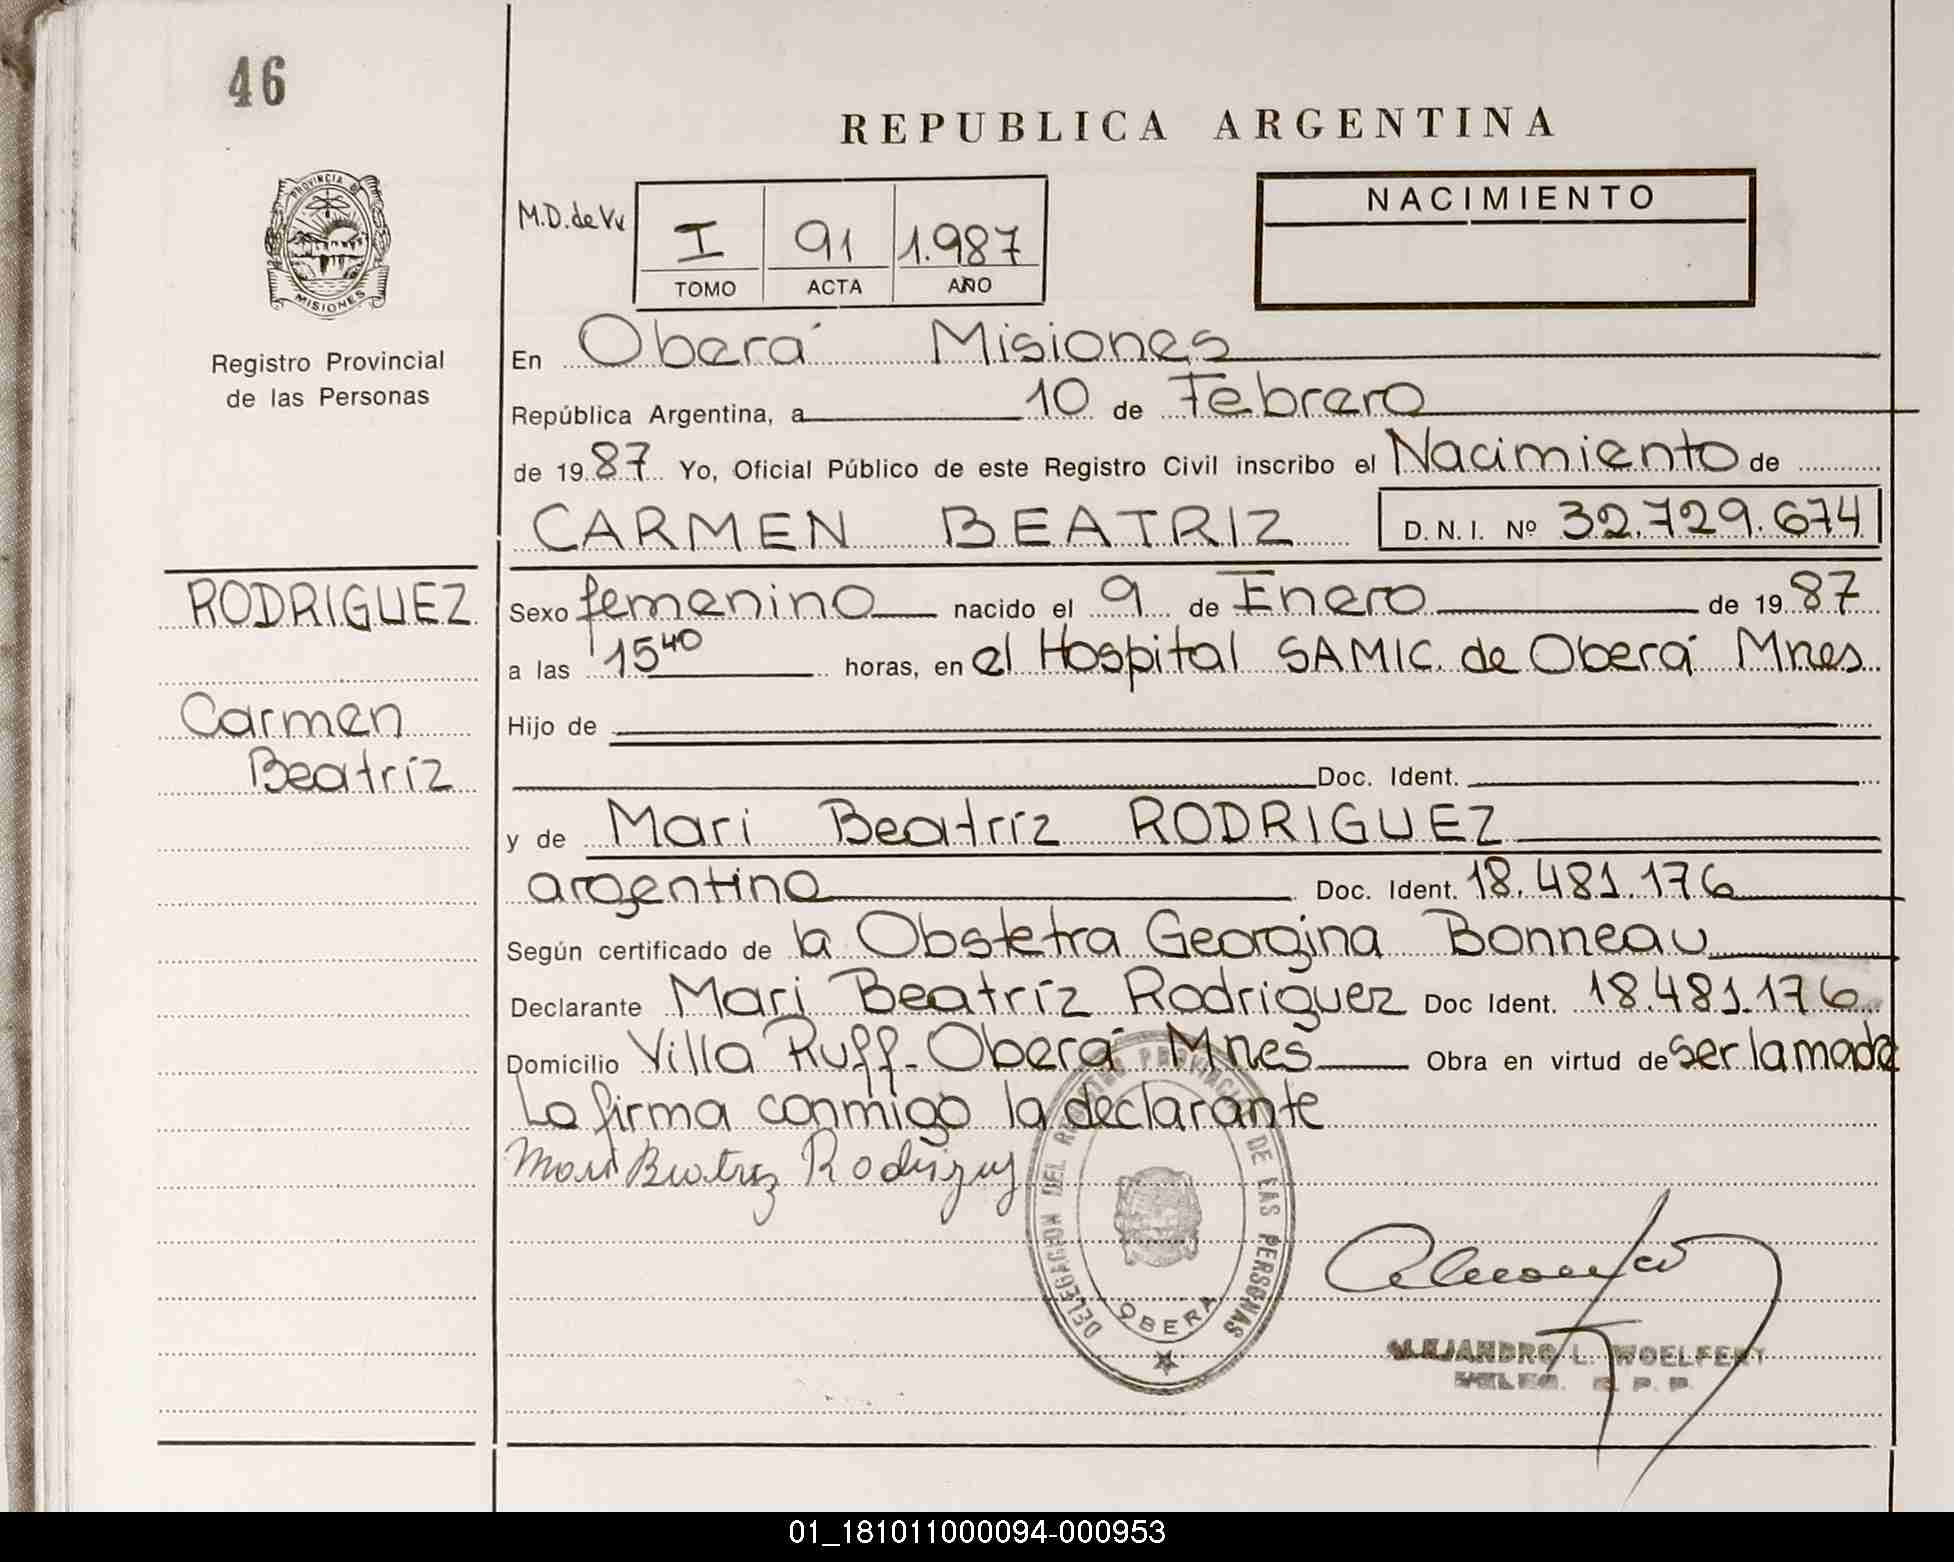 46
REPUBLICA ARGENTINA
PROVINCIA DE
MISIONES
Registro Provincial
de las Personas
NACIMIENTO
M.D. de Vv
I 91 1.987
TOMO ACTA AÑO
En Oberá Misiones
República Argentina, a 10 de Febrero
de 1987 Yo, Oficial Público de este Registro Civil inscribo el Nacimiento de
CARMEN BEATRIZ D.N.I. Nº 32.729.674
RODRIGUEZ
Carmen
Beatríz
Sexo femenino nacido el 9 de Enero de 1987
a las 15 40 horas, en el Hospital SAMIC. de Oberá Mnes
Hijo de
Doc. Ident.
y de Mari Beatríz RODRIGUEZ
argentina Doc. Ident. 18.481.176
Según certificado de la Obstetra Georgina Bonneau
Declarante Mari Beatríz Rodriguez Doc Ident. 18.481.176
Domicilio Villa Ruff - Oberá Mnes Obra en virtud de ser la madre
La firma conmigo la declarante
Mari Beatriz Rodriguez
DELEGACION DEL REGISTRO PROVINCIAL DE LAS PERSONAS
OBERA
ALEJANDRO L. WOELFERT
DELEG. R. P. P.
01_181011000094-000953